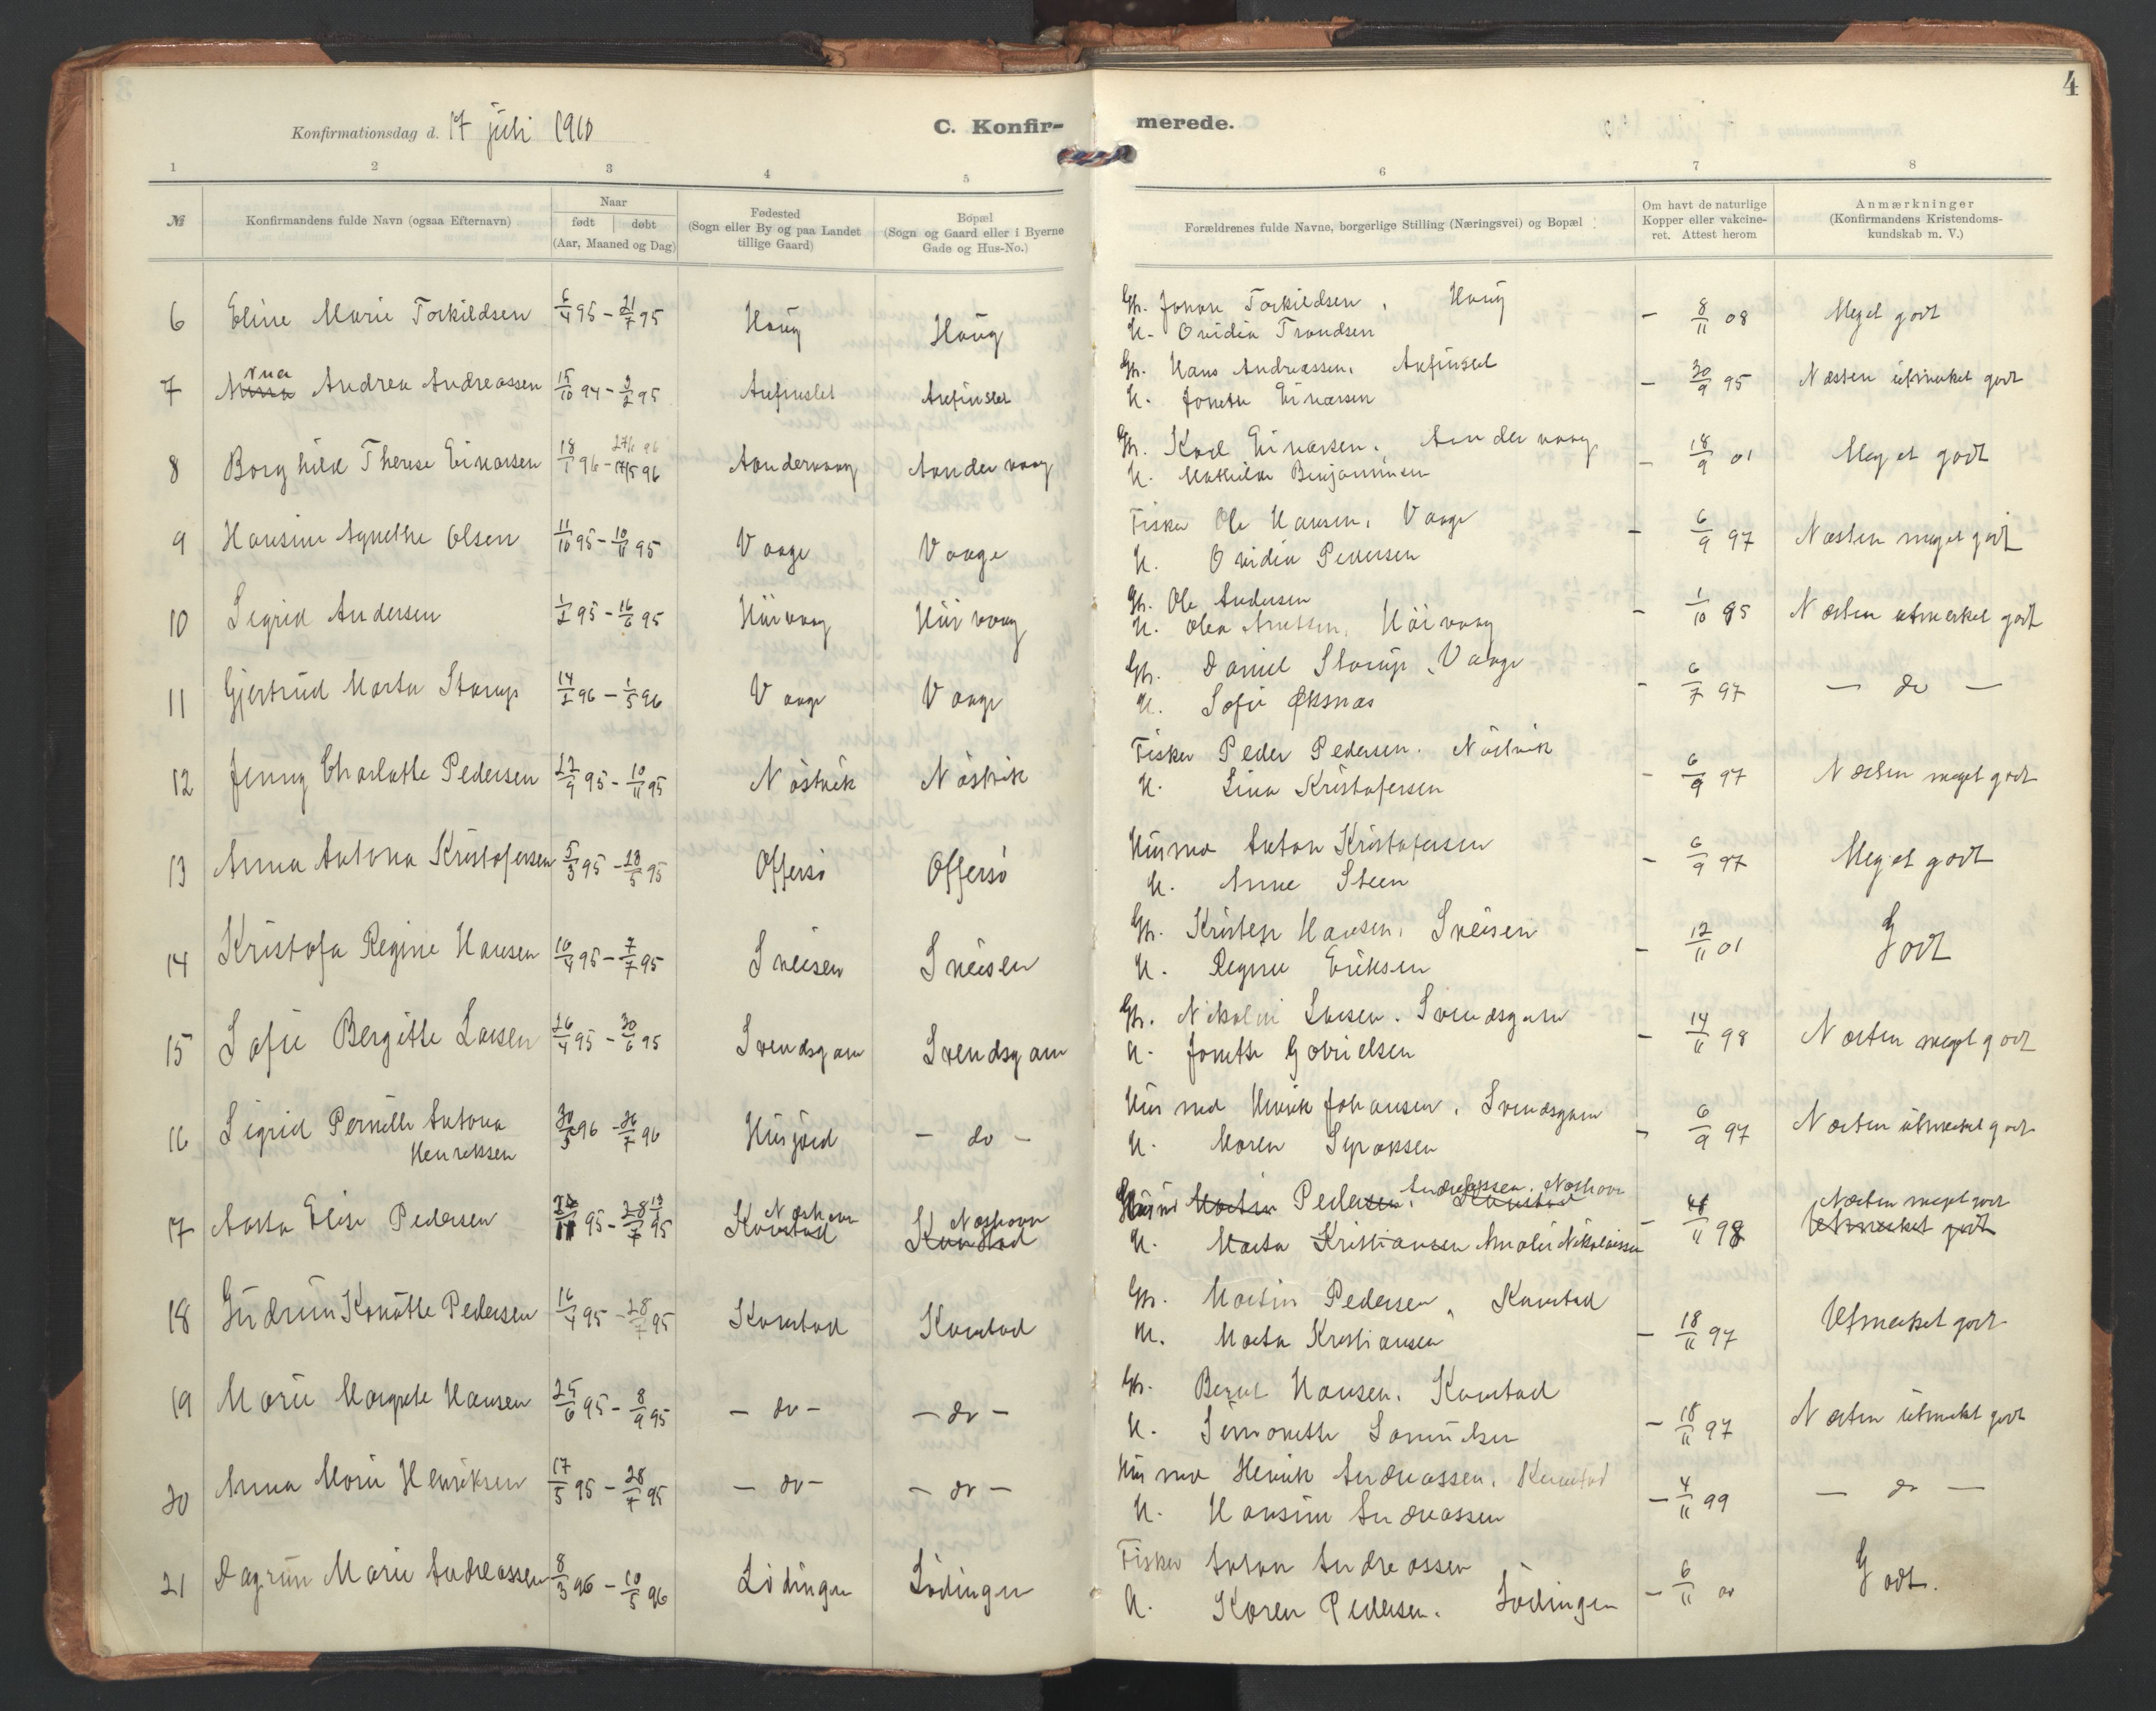 4
Konfirmationsdag d. 17 juli 1910
C. Konfir-
merede.
1 2 3 4 5 6 7 8
№
Konfirmandens fulde Navn (ogsaa Efternavn)
Naar
født døbt
(Aar, Maaned og Dag)
Fødested
(Sogn eller By og paa Landet
tillige Gaard)
Bopæl
(Sogn og Gaard eller i Byerne
Gade og Hus-No.)
Forældrenes fulde Navne, borgerlige Stilling (Næringsvei) og Bopæl
Om havt de naturlige
Kopper eller vakcine-
ret. Attest herom
Anmærkninger
(Konfirmandens Kristendoms-
kundskab m. V.)
6 Eline Marie Torkildsen 6/4 95 - 21/7 95 Haug Haug
Gbr. Johan Torkildsen, Haug
H. Ovidia Trondsen
- 8/11 08 Meget godt
7 Andrea Andreassen 15/10 94 - 2/2 95 Arfinslet Arfinslet
Gbr. Hans Andreassen, Arfinslet
H. Jonette Einarsen
- 30/9 95 Næsten utmerket godt
8 Borghild Therese Einarsen 18/1 96 - 17/5 96 Aandervaag Aandervaag
Gbr. Karl Einarsen, Aandervaag
H. Mathilde Benjaminsen
- 18/9 01 Meget godt
9 Hansine Agnethe Olsen 11/10 95 - 10/11 95 Vaage Vaage
Fisker Ole Hansen, Vaage
H. Ovidia Pedersen
- 6/9 97 Næsten meget godt
10 Sigrid Andersen 1/2 95 - 16/6 95
Gbr. Ole Andersen
H. Olea
- 1/10 95 Næsten utmerket godt
11 Gjertrud Marta Storup 14/2 96 - 1/5 96 Vaage Vaage
Gbr. Daniel Storup, Vaage
H. Sofie Øksnas
- 6/7 97 - do -
12 Jenny Charlotte Pedersen 22/9 95 - 10/11 95 Nöstvik Nöstvik
Fisker Peder Pedersen. Nöstvik
H. Lina Kristofersen
- 6/9 97 Næsten meget godt
13 Anna Antona Kristofersen 5/3 95 - 18/5 95 Offersö Offersö
Husmd Anton Kristofersen
H. Anne Steen
- 6/9 97 Meget godt
14 Kristofa Regine Hansen 16/4 95 - 7/7 95 Sneisen Sneisen
Gbr. Kristen Hansen, Sneisen
H. Regine Eriksen
- 12/11 01 Godt
15 Sofie Bergitte Larsen 26/4 95 - 30/6 95 Svendsgam Svendsgam
Gbr. Nikolai Larsen. Svendsgam
H. Jonette Gabrielsen
- 14/11 98 Næsten meget godt
16 Sigrid Pernille Antona 30/5 96 - 26/7 96 Husjord - do -
Henriksen
Husmd Henrik Johansen, Svendsgam
H. Maren Syraksen
- 6/9 97 Næsten utmerket godt
17 Aasta Elise Pedersen
Næshavn Næshavn
Kanstad Kanstad
Andreassen. Næshavn
Martin Pedersen, Kanstad
H. Marta Kristiansen Amalie Nikolaisen
Næsten meget godt
Utmerket godt
18 Gudrun Konütte Pedersen 16/4 95 - 28/7 95 Kanstad Kanstad
Gbr. Martin Pedersen, Kanstad
H. Marta Kristiansen
- 18/11 97 Utmerket godt
19 Marie Margrete Hansen 25/6 95 - 8/9 95 - do - - do -
Gbr. Bernt Hansen, Kanstad
H. Simonette Samuelsen
- 18/11 97 Næsten utmerket godt
20 Anna Marie Henriksen 17/5 95 - 28/7 95 - do - - do -
Husmd Henrik Andreassen, Kanstad
H. Hansine Andreassen
- 4/11 99 - do -
21 Dagrun Marie Andreassen 8/3 96 - 10/5 96 Lödingen Lödingen
Fisker Anton Andreassen
H. Karen Pedersen. Lödingen
- 6/11 00 Godt.